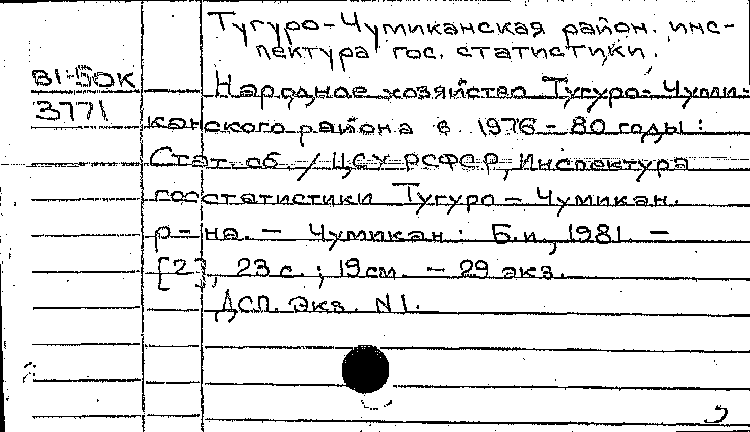 Тугуро-Чумиканская район. инс-
пектура гос. статистики.
В1-50К
3771
Народное хозяйство Тугуро-Чуми-
канского района в 1976-80 годы:
Стат. сб. / ЦСУ РСФСР, Инспектура
госстатистики Тугуро-Чумикан.
р-на. - Чумикан: Б.и., 1981. -
[2], 23 с.; 19 см. - 29 экз.
ДСП. Экз. N1.